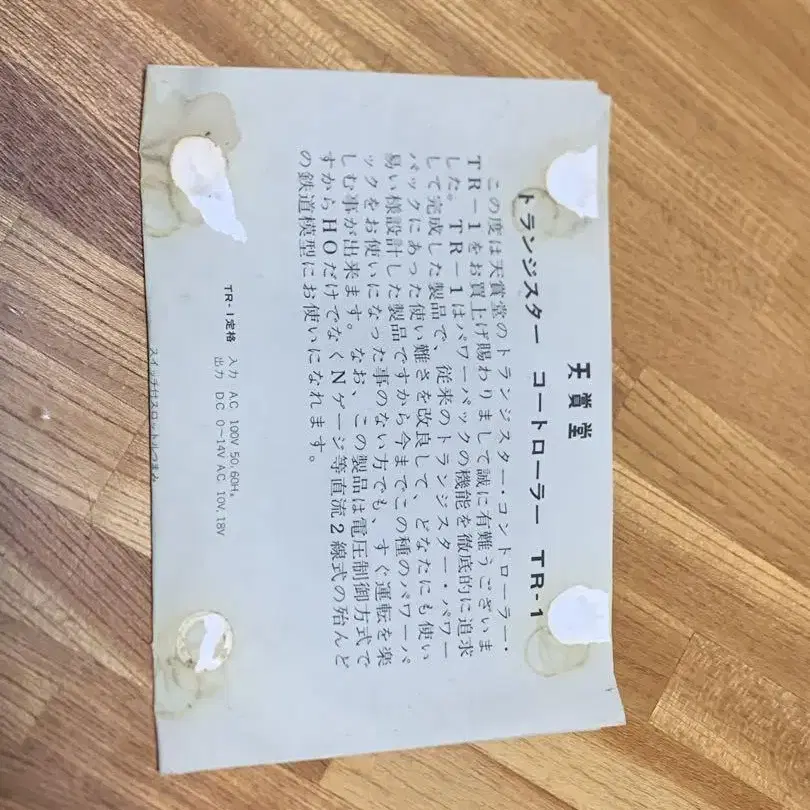 天賞堂
トランジスター コートローラー TR-1
この度は天賞堂のトランジスター・コントローラー・
TR-1をお買上げ賜わりまして誠に有難うございま
した。TR-1はパワーパックの機能を徹底的に追求
して完成した製品で、従来のトランジスター・パワー
パックにあった使い難さを改良して、どなたにも使い
易い様設計した製品ですから今までこの種のパワーパ
ックをお使いになった事のない方でも、すぐ運転を楽
しむ事が出来ます。なお、この製品は電圧制御方式で
すからHOだけでなくNゲージ等直流2線式の殆んど
の鉄道模型にお使いになれます。
TR-1定格 入力 AC 100V 50,60Hz
出力 DC 0〜14V AC 10V,18V